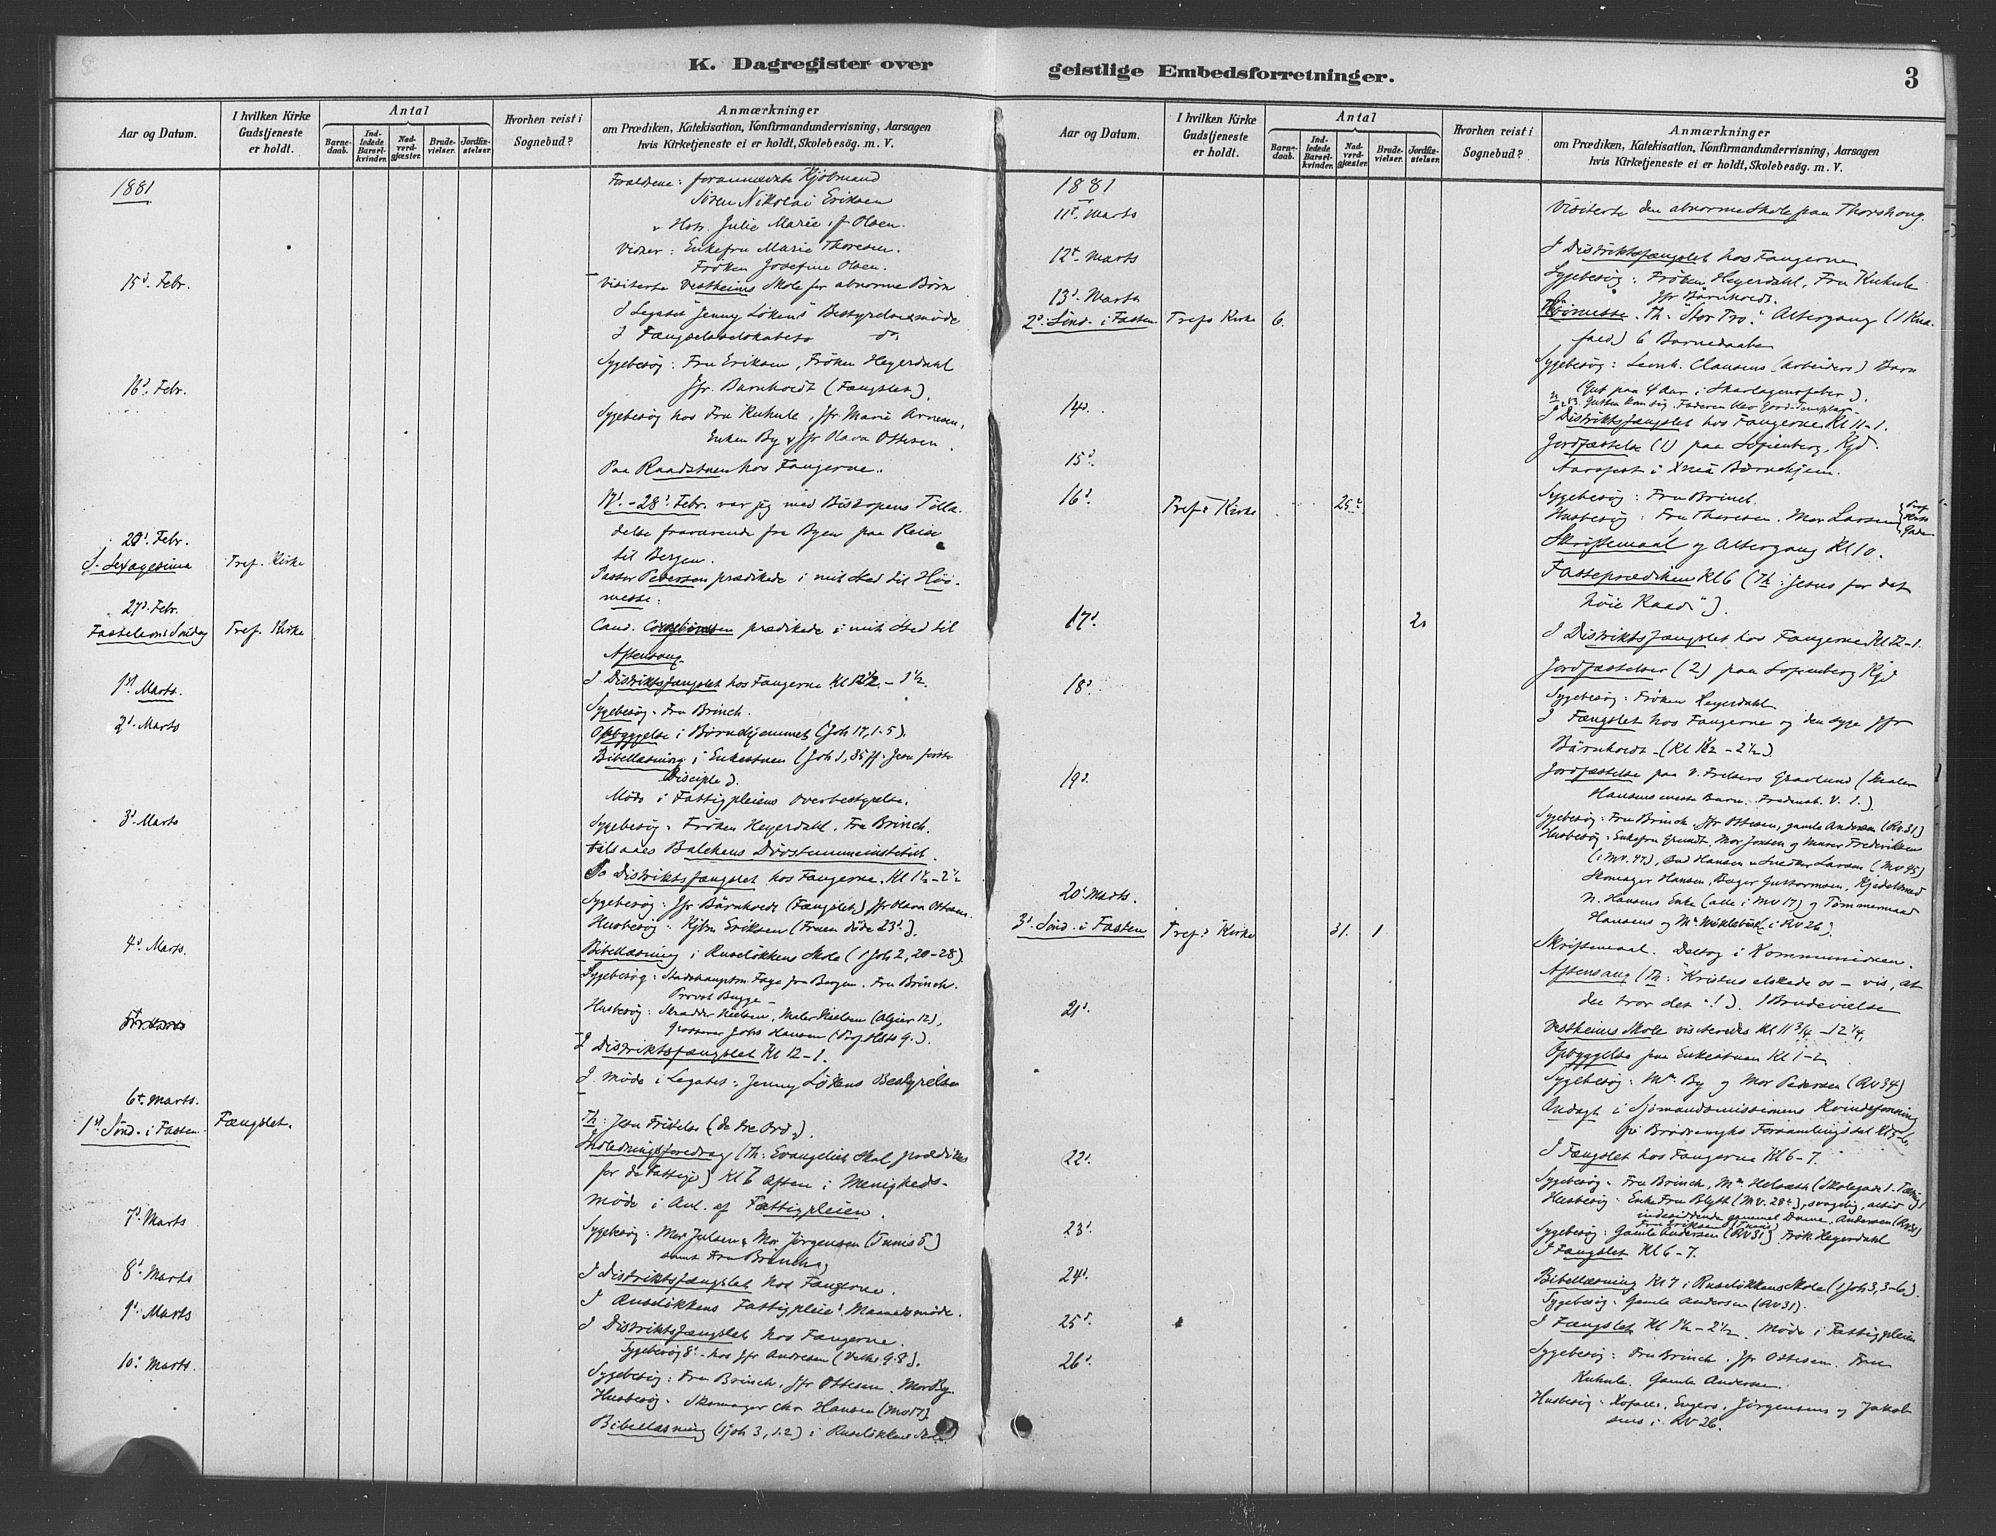 K. Dagregister over geistlige Embedsforretninger.
3
Aar og Datum.
I hvilken Kirke Gudstjeneste er holdt.
Antal
Barnedaab.
Indledede Barselkvinder.
Nadverdgjæster.
Brudevielser.
Jordfæstelser.
Hvorhen reist i Sognebud?
Anmærkninger
om Prædiken, Katekisation, Konfirmandundervisning, Aarsagen
hvis Kirketjeneste ei er holdt, Skolebesøg. m. V.
1881
Forældrene: forannævnte Kjøbmand
Søren Nikolai Eriksen
Hstr. Julie Marie, f. Olsen.
Vidner: Enkefru Marie Thoresen.
Frøken Josefine Olsen.
15d. Febr.
Visiterte Vestheims Skole for abnorme Børn
I Legatet Jenny Løkens Bestyrelsesmøde
I Fængselsselskabets do
Sygebesøg: Fru Eriksen, Frøken Heyerdahl
Jfr. Barnholdt (Fængslet).
16d. Febr.
Sygebesøg hos Fru Kuhnle, Jfr Marie Arnesen,
Enken By & Jfr Olava Ottesen.
Paa Raadstuen hos Fangerne.
17d - 28d. Febr. var jeg med Biskopens Tilla-
delse fraværende fra Byen paa Reise
til Bergen.
20d. Febr.
S. Sexagesima
Tref. Kirke
Pastor Petersen prædikede i mit Sted til Høi-
messe.
27d. Febr.
Fastelavns Søndag
Tref. Kirke
Cand. prædikede i mit Sted til
Aftensang.
1st Marts.
I Distriktsfængslet hos Fangerne Kl 12½ - 1½.
Sygebesøg. Fru Brinch.
2d. Marts
Opbyggelse i Børnehjemmet (Joh 17, 1-5).
Bibellæsning i Enkestuen (Joh 1, 35 ff. Jesu første
Disciple).
Møde i Fattigpleiens Overbestyrelse.
3d Marts
Sygebesøg. Frøken Heyerdahl. Fru Brinch.
Balchens Døvstummeinstitut.
I Distriktsfængslet hos Fangerne. Kl 1½ - 2½
Sygebesøg: Jfr Bärnholdt (Fængslet) Jfr Olava Ottesen.
Husbesøg. Kjbm Eriksen (Fruen døde 23d.).
4d. Marts.
Bibellæsning i Ruseløkkens Skole (1 Joh 2, 20-28).
Sygebesøg: Stadshauptm. Faye fra Bergen. Fru Brinch.
Provst Bugge
Husbesøg: Skrædder Nielsen, Maler Nielsen (Algier 12),
Grosserer Johs Hansen (Prof. Hsts g.).
I Distriktsfængslet Kl 12-1.
I møde i Legatet: Jenny Løkens Bestyrelse
6te Marts.
1st Sønd. i Fasten
Fængslet.
Th: Jesu Fristelse (de tre Ord.).
Indledningsforedrag (Th: Evangeliet skal prædikes
for de Fattige) Kl 6 Aften i Menigheds-
møde i Anl. af Fattigpleien.
7d Marts
Sygebesøg: Mor Julsen & Mor Jørgensen (Tunis 5)
samt Fru Brinch
8d Marts
I distriktsfængslet hos Fangerne.
9d. Marts
I Ruseløkkens Fattigpleies Maanedsmøde.
I Distriktsfængslet hos Fangerne.
Sygebesøg 8d. hos Jfr Andresen (Velhs. g. 8).
10d. Marts.
Sygebesøg: Fru Brinch, Jfr Ottesen, Mor By.
Husbesøg. Skomager Chr Hansen (Mv 17).
Bibellæsning (1 Joh 3, 1.2) i Ruseløkkens Skole
Aar og Datum.
I hvilken Kirke Gudstjeneste er holdt.
Antal
Barnedaab.
Indledede Barselkvinder.
Nadverdgjæster.
Brudevielser.
Jordfæstelser.
Hvorhen reist i Sognebud?
Anmærkninger
om Prædiken, Katekisation, Konfirmandundervisning, Aarsagen
hvis Kirketjeneste ei er holdt, Skolebesøg. m. V.
1881
11te Marts
Visiterte den abnorme Skole paa Thorshaug.
12te Marts
I Distriktsfængslet hos Fangerne
Sygebesøg: Frøken Heyerdahl, Fru Kuhnle
Jfr Bärnholdt.
13d. Marts
2d. Sønd. i Fasten
Tref. Kirke
6.
Høimesse. Th. "Stor Tro." Altergang (1 Knæ-
fald) 6 Barnedaab
Sygebesøg: Leonh. Clausens (Arbeiders) Barn
(Gut paa 4 Aar i Skarlagensfeber).
14d.
I Distriktsfængslet hos Fangerne Kl 11-1.
Jordfæstelse (1) paa Sofienberg Kgd.
15d.
Aarsfest i Børnehjem.
16d.
Tref. Kirke
25
Sygebesøg: Fru Brinch
Husbesøg: Fru Thoresen. Mor Larsen
Skriftemaal og Altergang Kl 10.
Fasteprædiken Kl 6 (Th: Jesus for det
høie Raad").
17d.
2.
I Distriktsfængslet hos Fangerne Kl 12-1.
Jordfæstelser (2) paa Sofienberg Kgd
18d.
Sygebesøg: Frøken Heyerdahl
I Fængslet hos Fangerne og den syge Jfr
Bärnholdt. (Kl 1½ - 2½)
19d.
Jordfæstelse paa V. Frelsers Gravlund (Maler
Hansens Barn. Fredensb. V. 1.).
Sygebesøg: Fru Brinch. Jfr Ottesen, gamle Andersen (Rv 31)
Husbesøg. Enkefru Grundt, Mor Jonsen og Murer Frederiksen
(i Mv. 47), Larsen (Mv 45)
Skomager Hansen, Bager Guttormsen, Kjedelsmed
N. Hansens Enke (alle i Mv 17) og Tømmermand
Hansens og Mm Miklebust (i Rv 26).
20d Marts.
3d. Sønd. i Fasten
Tref. Kirke
31.
1
Skriftemaal. Deltog i Kommunionen.
Aftensang (Th: "Kristus elskede os - vis, at
du tror det"!). 1 Brudevielse
21d.
Vestheims Skole visiteredes Kl 11¾ - 12¼.
Opbyggelse paa Enkestuen Kl 1-2
Sygebesøg: Mm By og Mor Pedersen (Rv 34)
Andagt i Sjømandsmissionens Kvindeforening
Forsamlingssal Kl 5-6.
I Fængslet hos Fangerne Kl 6-7.
22d.
Sygebesøg. Fru Brinch, Mm Helseth (Skolegade 1.
Husbesøg: Enke Fru Blyth (Mv. 28),
gammel Dame, Andersen (Rv 31)
23d.
Sygebesøg: Gamle Andersen (Rv 31) Frøk. Heyerdahl
I Fængslet Kl 6-7.
24d.
Bibellæsning Kl 7 i Ruseløkkens Skole (1 Joh 3, 3-6).
Sygebesøg: Gamle Andersen (Rv 31).
25d.
I Fængslet Kl 1½ - 2½. Møde i Fattigpleien
26d.
Sygebesøg: Fru Brinch. Jfr Ottesen. Fru
Kuhnle. Gamle Andersen.
Husbesøg: Engers, Jørgensens og Jakob-
sens i Rv 26.